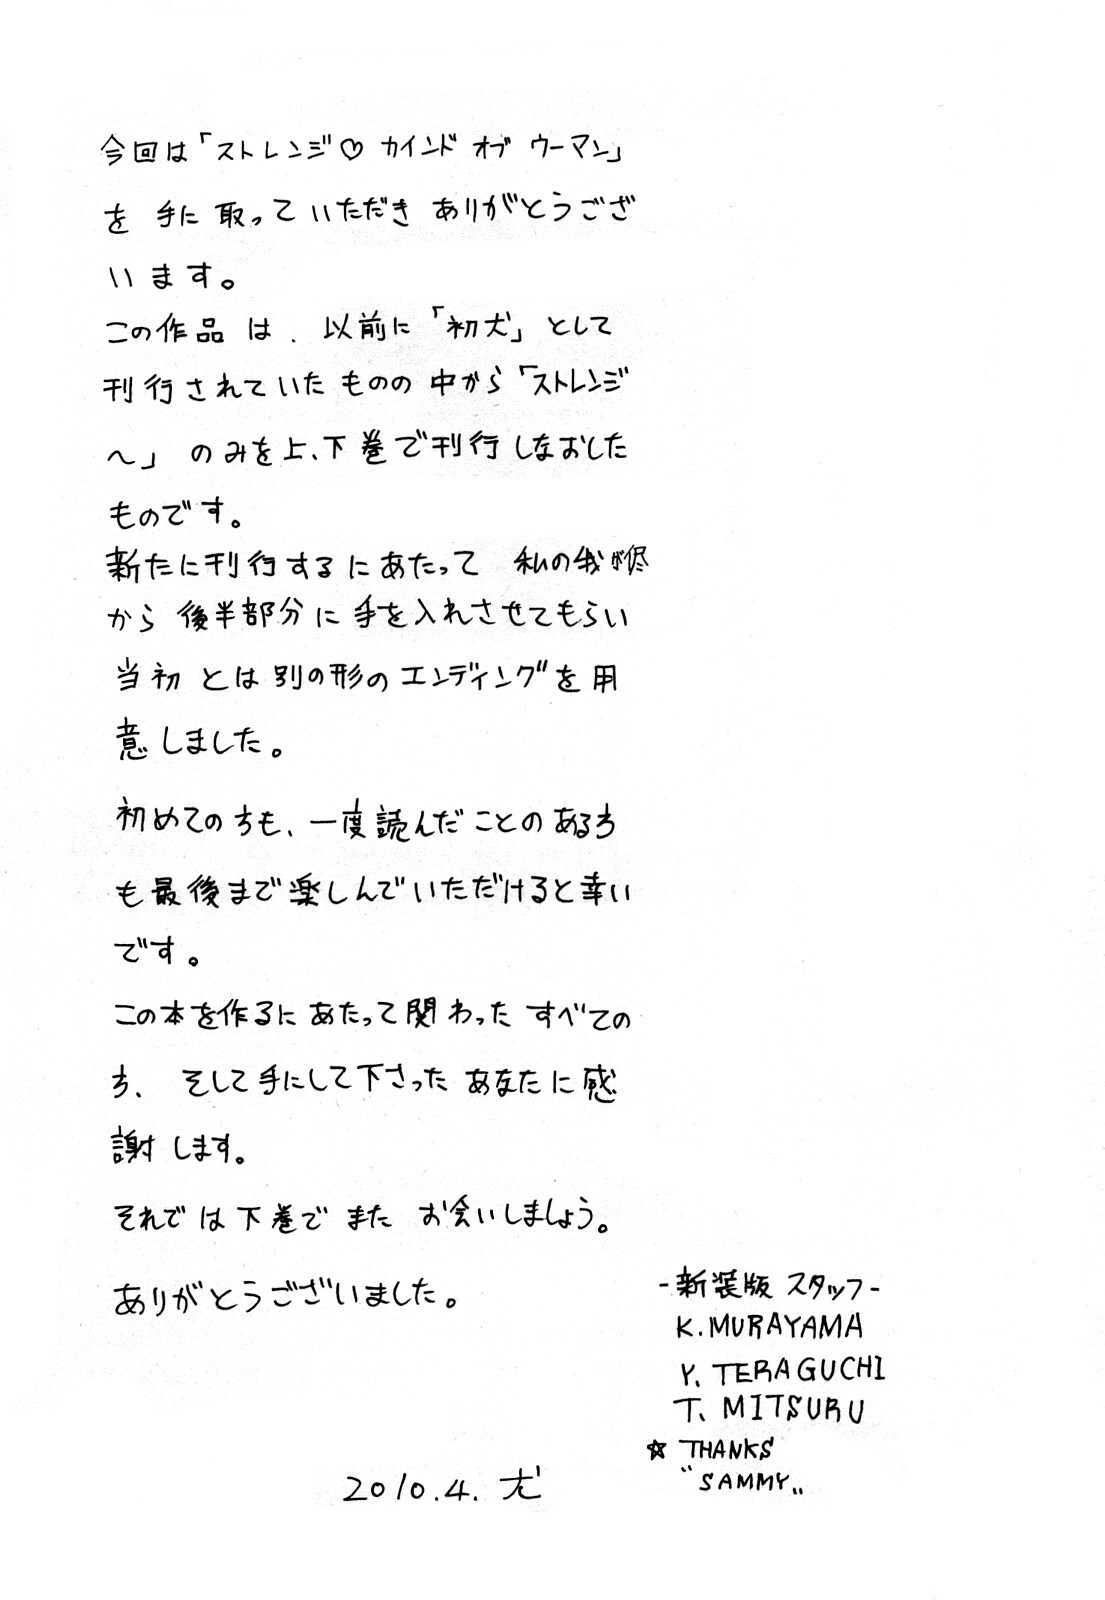 今回は「ストレンジ♡カインド オブ ウーマン」
を 手に 取っていただき ありがとうござ
います。
この作品は、以前に「初犬」として
刊行されていたものの中から「ストレンジ
〜」のみを上、下巻で刊行しなおした
ものです。
新たに刊行するにあたって 私の我が侭
から 後半部分に手を入れさせてもらい
当初とは別の形のエンディングを用
意しました。
初めての方も、一度読んだことのある方
も最後まで楽しんでいただけると幸い
です。
この本を作るにあたって関わったすべての
方、そして手にして下さったあなたに感
謝します。
それでは下巻でまた お会いしましょう。
ありがとうございました。
-新装版 スタッフ-
K.MURAYAMA
Y. TERAGUCHI
T. MITSURU
☆ THANKS
"SAMMY„
2010.4.